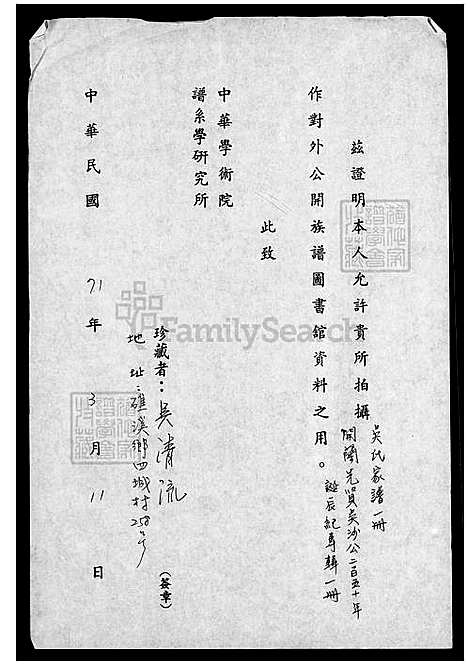 茲證明本人允許貴所拍攝
吳氏家譜一冊
開蘭先賢吳沙公二百五十年
誕辰紀專輯一冊
作對外公開族譜圖書館資料之用。
此致
中華學術院
譜系學研究所
珍藏者：吳清流
地址：礁溪鄉四城村258號
（簽章）
中華民國71年3月11日
FamilySearch